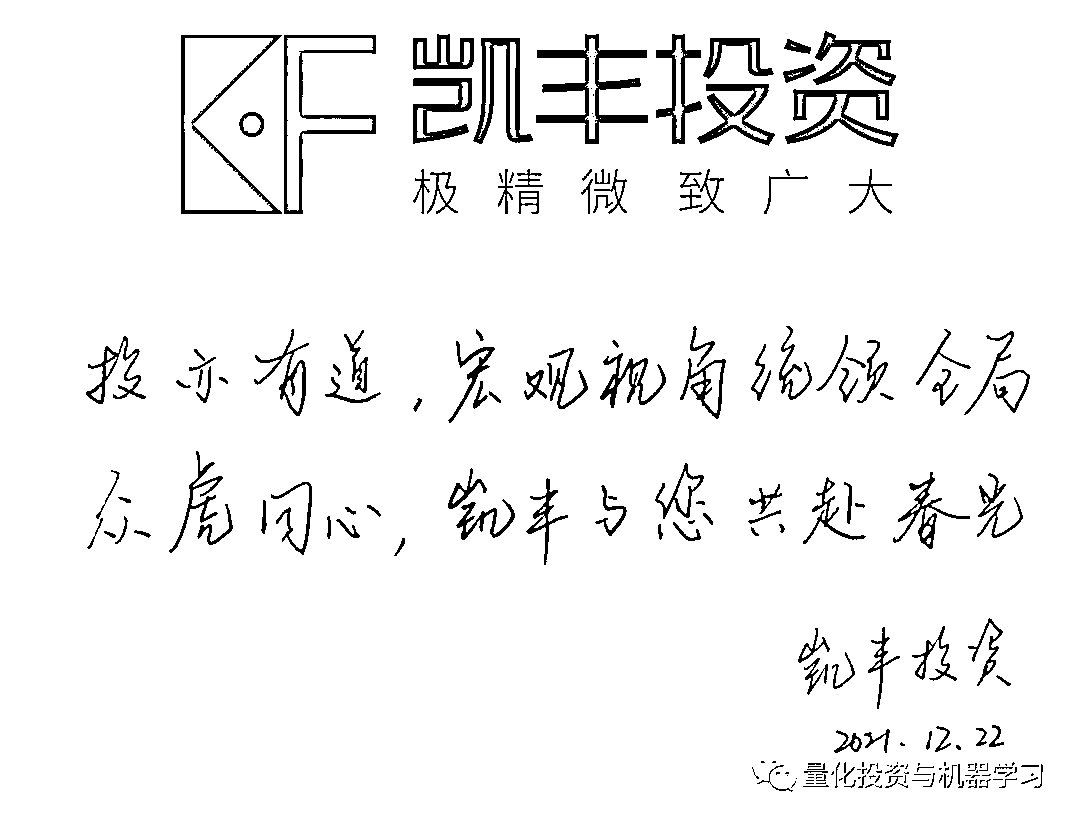 KF 凯丰投资
极精微 致广大
投亦有道，宏观视角统领全局
众虎同心，凯丰与您共赴春光
凯丰投资
2021.12.22
量化投资与机器学习